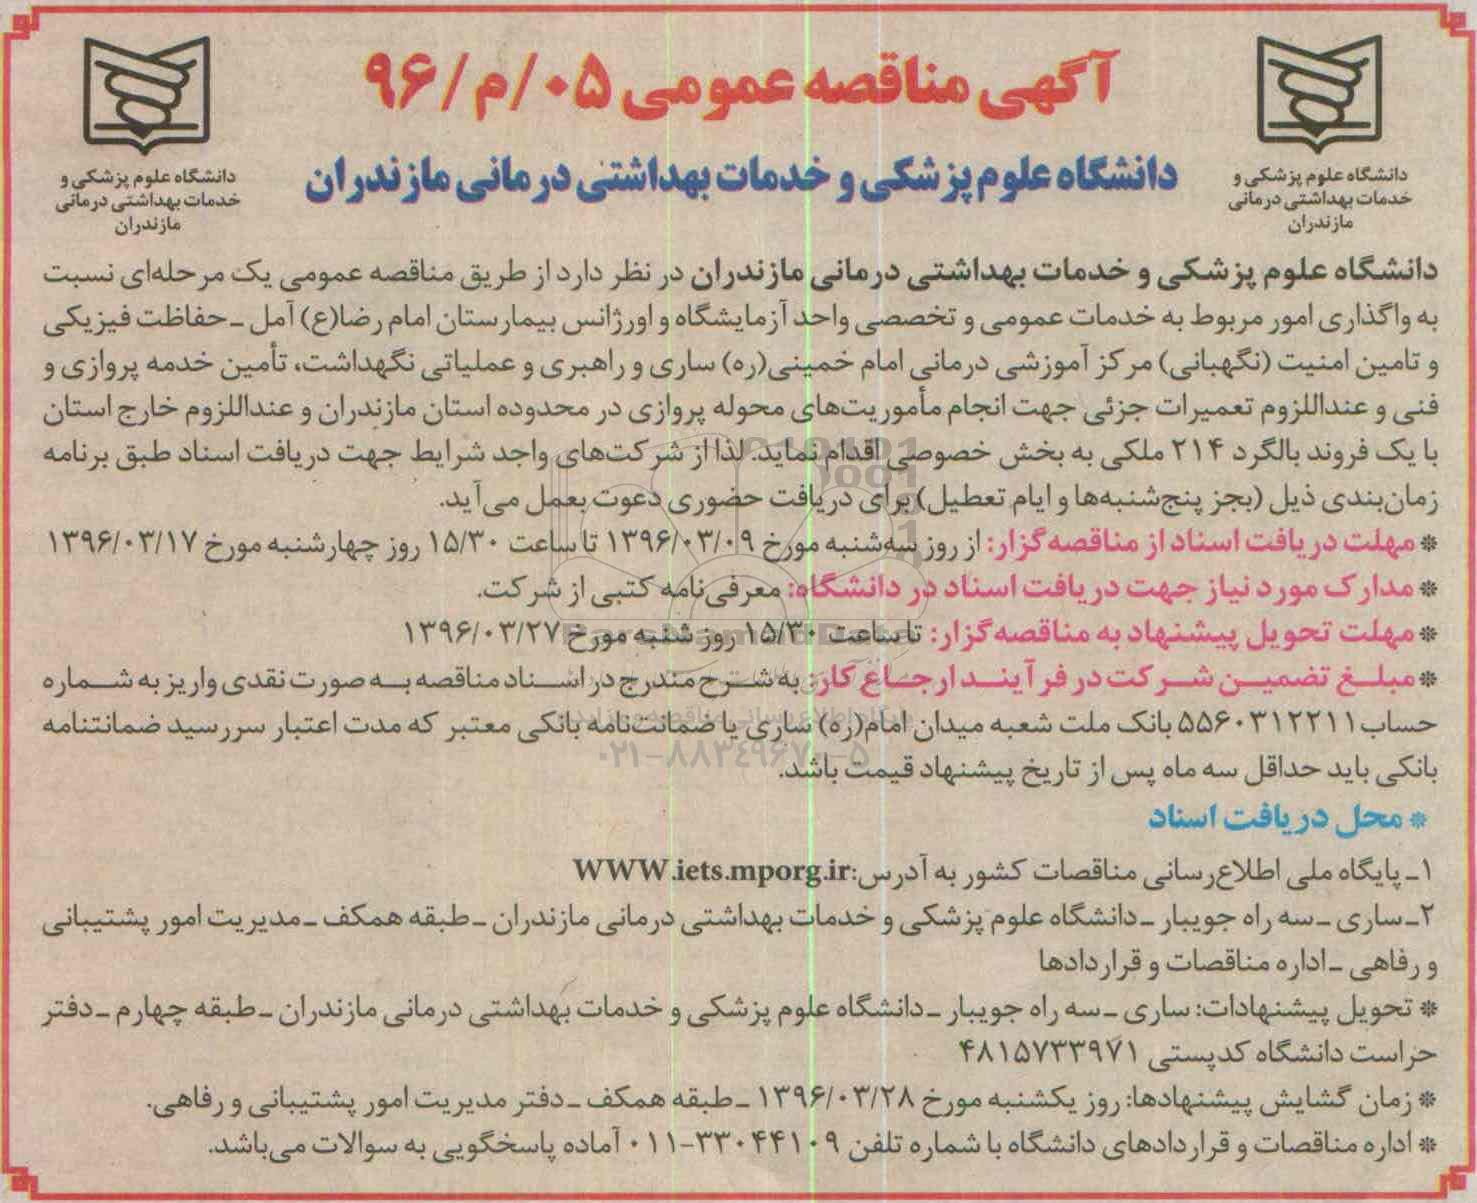 آگهی مناقصه عمومی ۰۵/م/۹۶
دانشگاه علوم پزشکی و خدمات بهداشتی درمانی مازندران
دانشگاه علوم پزشکی و
خدمات بهداشتی درمانی
مازندران
دانشگاه علوم پزشکی و
خدمات بهداشتی درمانی
مازندران
دانشگاه علوم پزشکی و خدمات بهداشتی درمانی مازندران در نظر دارد از طریق مناقصه عمومی یک مرحله‌ای نسبت
به واگذاری امور مربوط به خدمات عمومی و تخصصی واحد آزمایشگاه و اورژانس بیمارستان امام رضا(ع) آمل ـ حفاظت فیزیکی
و تامین امنیت (نگهبانی) مرکز آموزشی درمانی امام خمینی(ره) ساری و راهبری و عملیاتی نگهداشت، تأمین خدمه پروازی و
فنی و عنداللزوم تعمیرات جزئی جهت انجام مأموریت‌های محوله پروازی در محدوده استان مازندران و عنداللزوم خارج استان
با یک فروند بالگرد ۲۱۴ ملکی به بخش خصوصی اقدام نماید. لذا از شرکت‌های واجد شرایط جهت دریافت اسناد طبق برنامه
زمان‌بندی ذیل (بجز پنج‌شنبه‌ها و ایام تعطیل) برای دریافت حضوری دعوت بعمل می‌آید.
* مهلت دریافت اسناد از مناقصه‌گزار: از روز سه‌شنبه مورخ ۱۳۹۶/۰۳/۰۹ تا ساعت ۱۵/۳۰ روز چهارشنبه مورخ ۱۳۹۶/۰۳/۱۷
* مدارک مورد نیاز جهت دریافت اسناد در دانشگاه: معرفی‌نامه کتبی از شرکت.
* مهلت تحویل پیشنهاد به مناقصه‌گزار: تا ساعت ۱۵/۳۰ روز شنبه مورخ ۱۳۹۶/۰۳/۲۷
* مبلغ تضمین شرکت در فرآیند ارجاع کار: به شرح مندرج در اسناد مناقصه به صورت نقدی واریز به شماره
حساب ۵۵۶۰۳۱۲۲۱۱ بانک ملت شعبه میدان امام(ره) ساری یا ضمانت‌نامه بانکی معتبر که مدت اعتبار سررسید ضمانتنامه
بانکی باید حداقل سه ماه پس از تاریخ پیشنهاد قیمت باشد.
۰۲۱-۸۸۳۴۹۶۷۰-۵
* محل دریافت اسناد
۱ـ پایگاه ملی اطلاع‌رسانی مناقصات کشور به آدرس: WWW.iets.mporg.ir
۲ـ ساری ـ سه راه جویبار ـ دانشگاه علوم پزشکی و خدمات بهداشتی درمانی مازندران ـ طبقه همکف ـ مدیریت امور پشتیبانی
و رفاهی ـ اداره مناقصات و قراردادها
* تحویل پیشنهادات: ساری ـ سه راه جویبار ـ دانشگاه علوم پزشکی و خدمات بهداشتی درمانی مازندران ـ طبقه چهارم ـ دفتر
حراست دانشگاه کدپستی ۴۸۱۵۷۳۳۹۷۱
* زمان گشایش پیشنهادها: روز یکشنبه مورخ ۱۳۹۶/۰۳/۲۸ ـ طبقه همکف ـ دفتر مدیریت امور پشتیبانی و رفاهی.
* اداره مناقصات و قراردادهای دانشگاه با شماره تلفن ۳۳۰۴۴۱۰۹-۰۱۱ آماده پاسخگویی به سوالات می‌باشد.